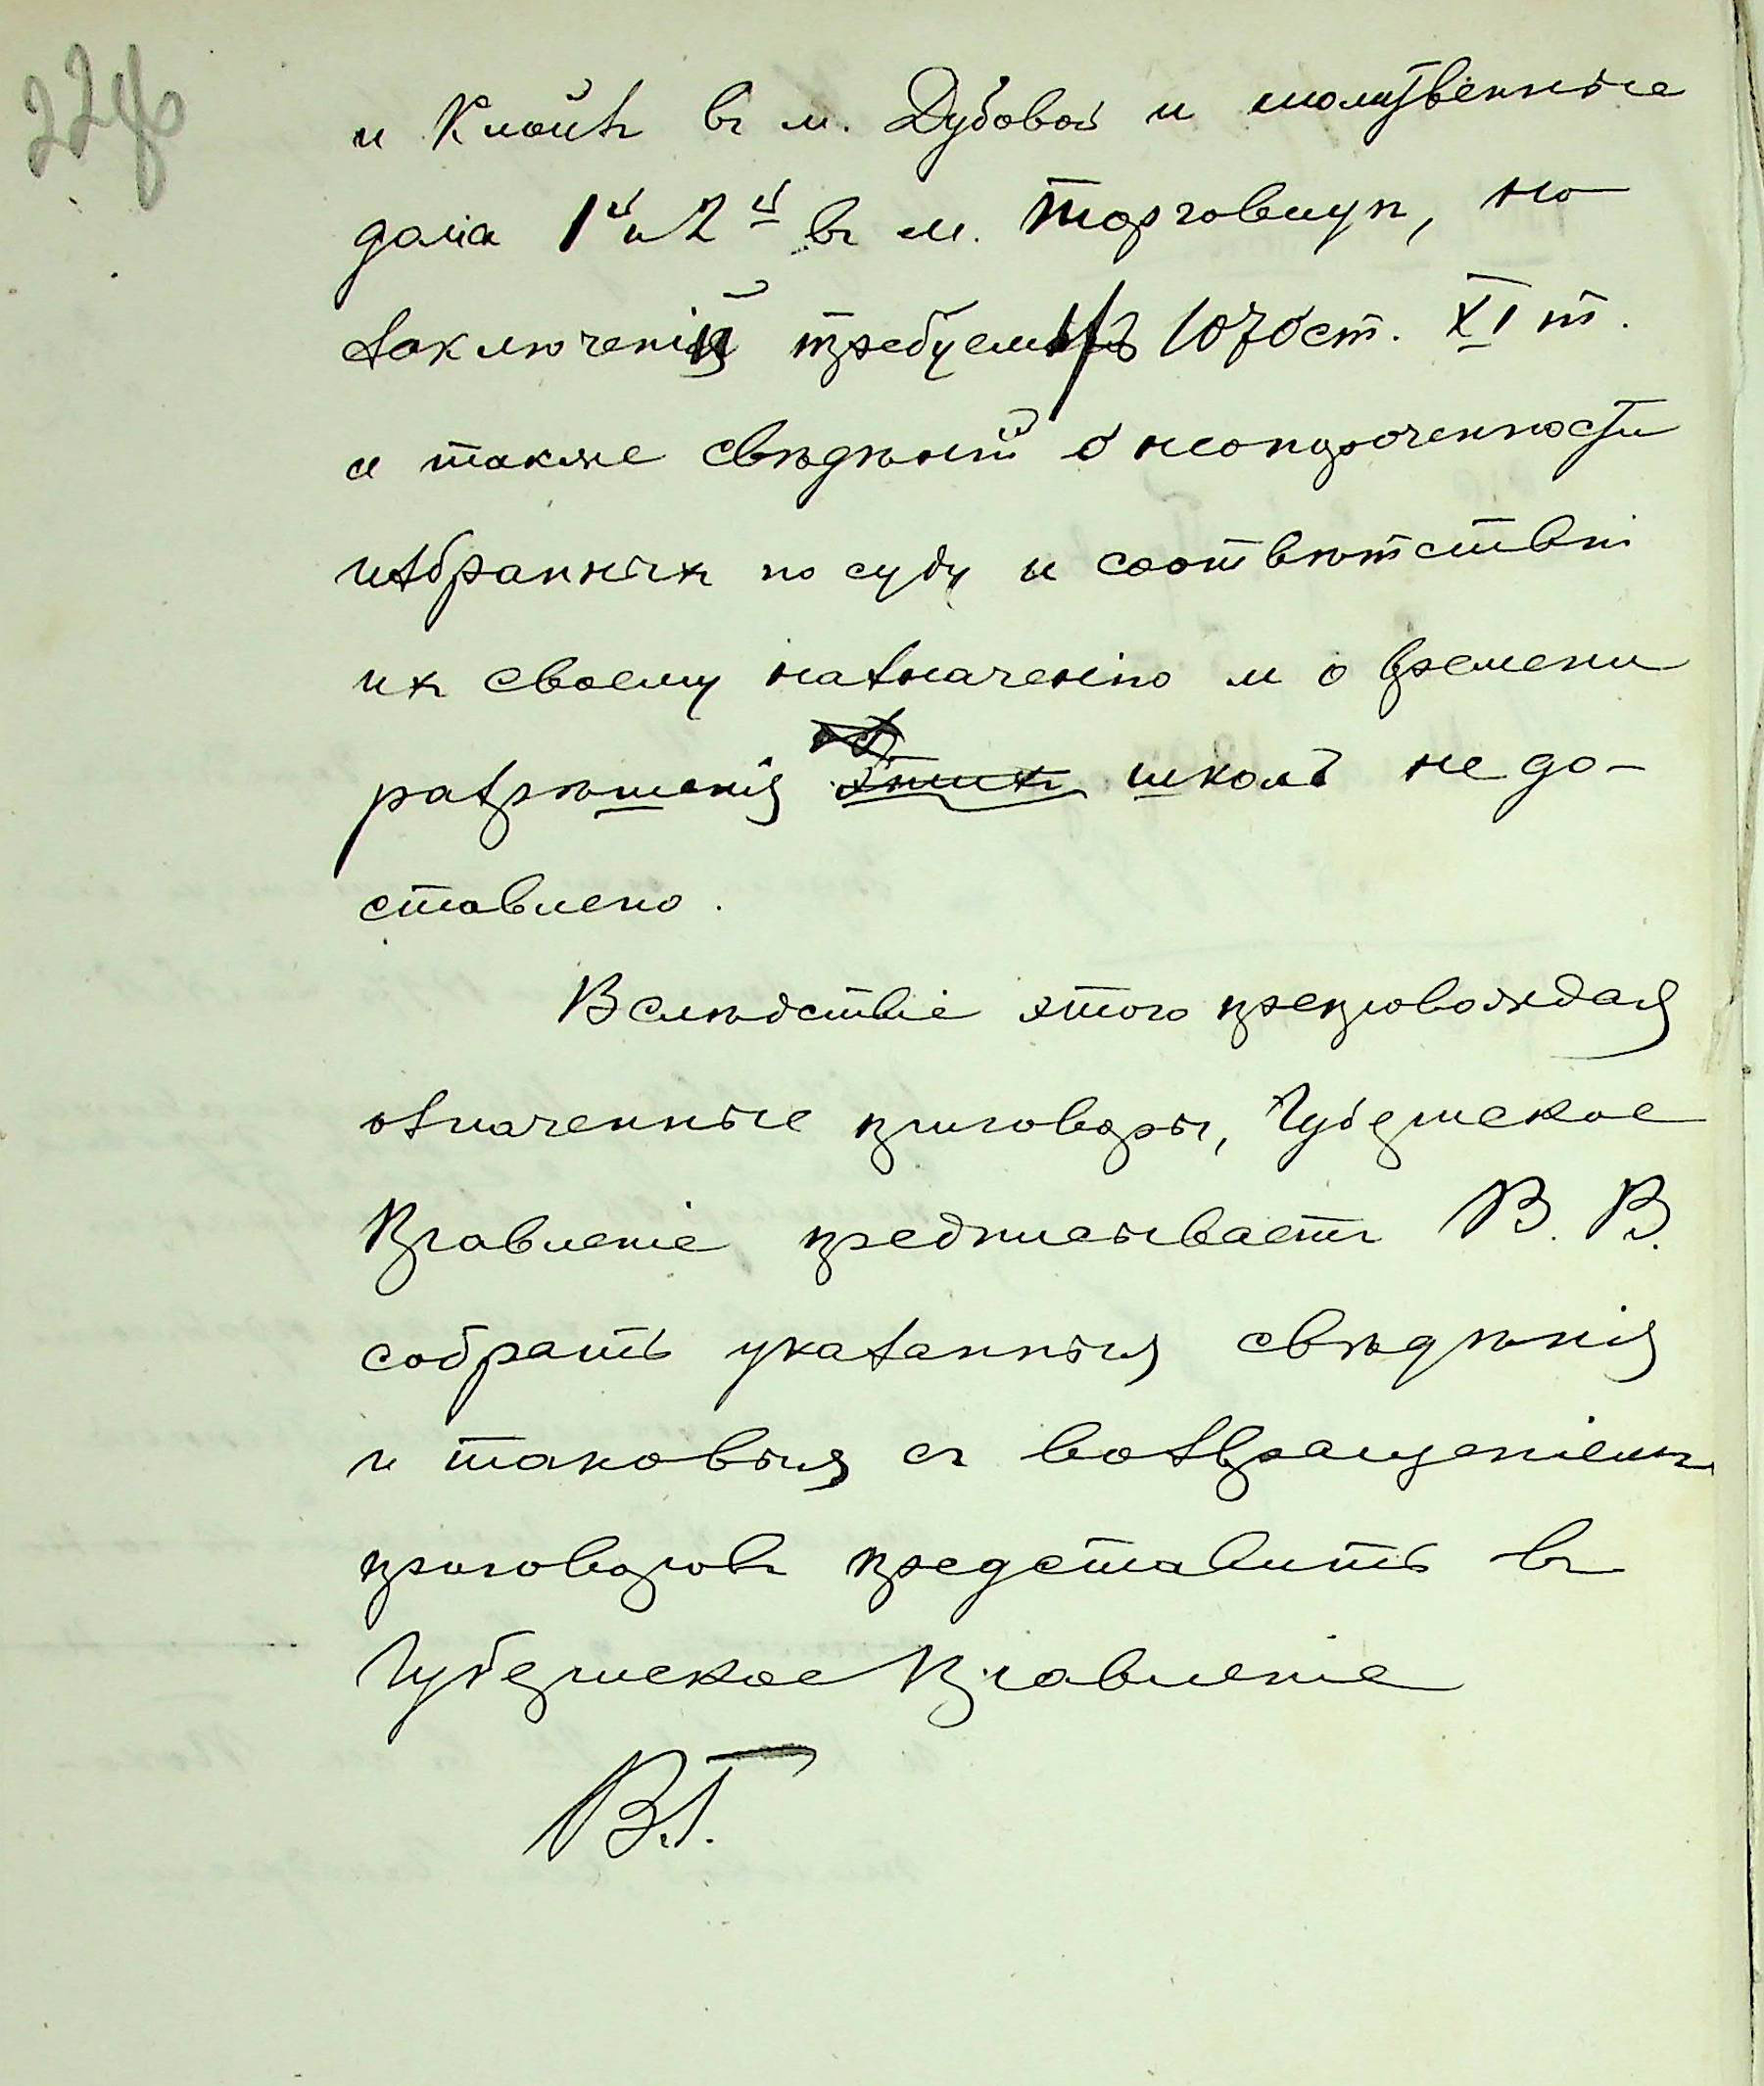 228
и Клойзъ въ м. Дубовой и молитвенные
дома 1й и 2й въ м. Торговицѣ, но
заключеній требуемыхъ 1070 ст. XI т.
а также свѣдѣній о неопороченности
избранныхъ по суду и соотвѣтствіи
ихъ своему назначенію и о времени
разрѣшенія этихъ школъ не до-
ставлено.
Вслѣдствіе этого препровождая
означенные приговоры, Губернское
Правленіе предписываетъ В. В.
собрать указанныя свѣдѣнія
и таковыя съ возвращеніемъ
приговоровъ представить въ
Губернское Правленіе
В.Г.